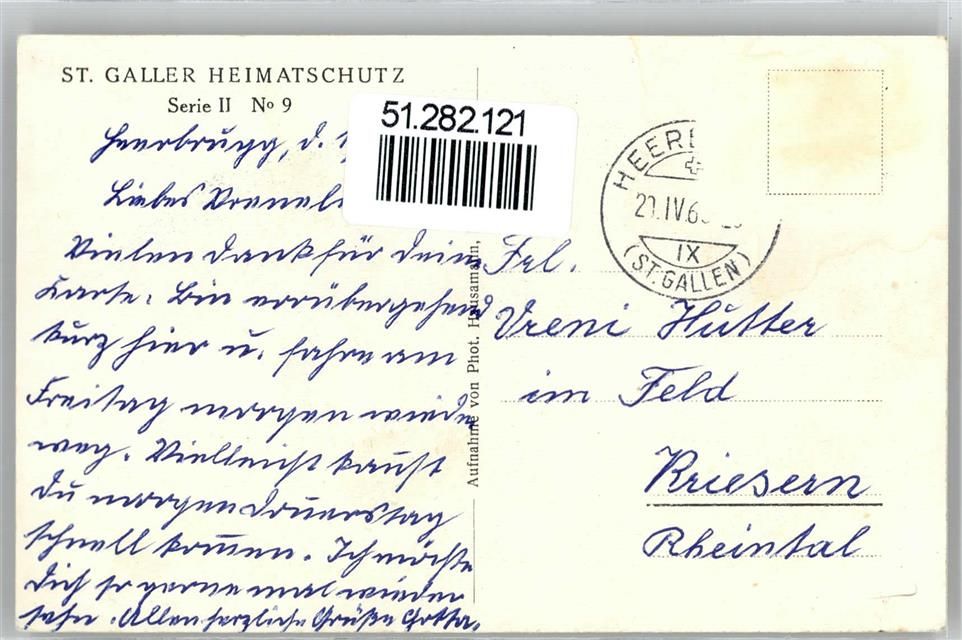 ST. GALLER HEIMATSCHUTZ
Serie II No 9
51.282.121
Heerbrugg, d.
Liebes Vreneli
Vielen Dank für deine
Karte. Bin vorübergehend
kurz hier u. fahre am
Freitag morgen wieder
weg. Vielleicht kannst
du morgen Donnerstag
schnell kommen. Ich möchte
dich so gerne mal wieder
sehn. Allen herzliche Grüße
Aufnahme von Phot. Hausamann,
HEER
IV.6
IX
(ST. GALLEN)
Frl.
Vreni Hutter
im Feld
Kriesern
Rheintal